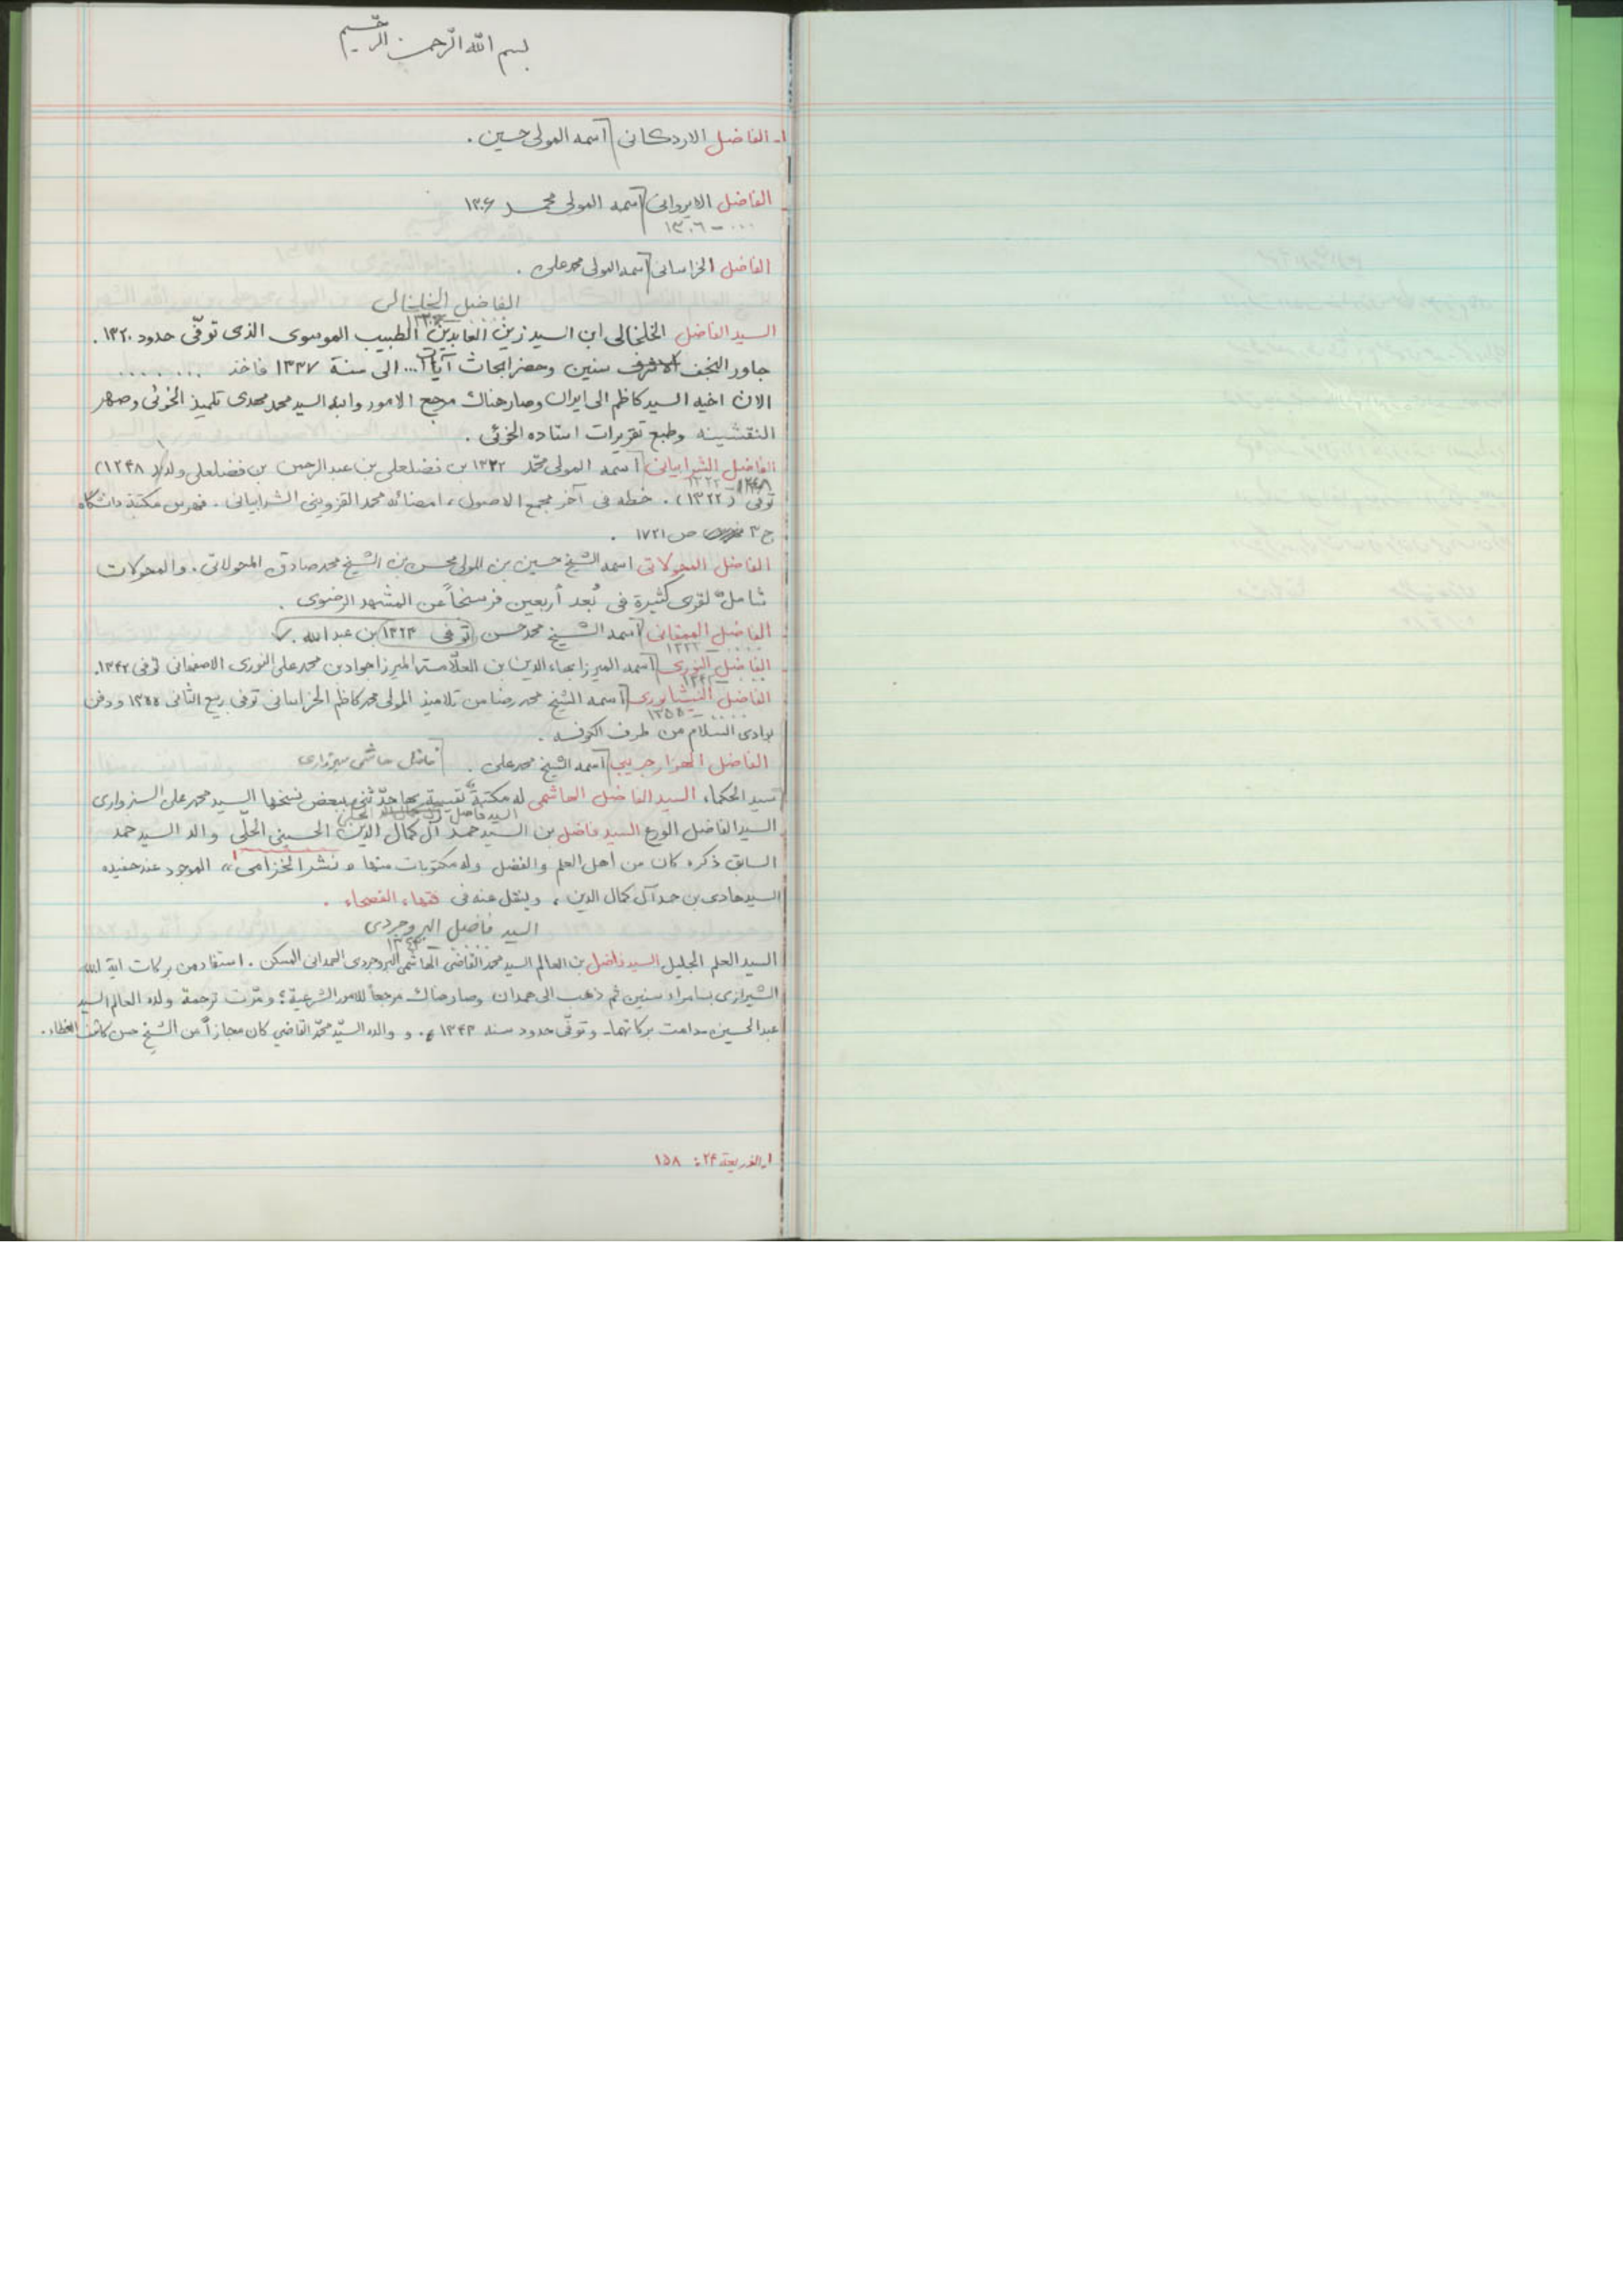 بسم الله الرّحمن الرّحیم
۱ـ الفاضل الاردکانی] اسمه المولی حسین .
الفاضل الایروانی] اسمه المولی محمد ۱۳۰۶
... - ۱۳۰۶
الفاضل الخراسانی] اسمه المولی محمد علی .
الفاضل الخلخالی
السید الفاضل الخلخالی ابن السید زین العابدین الطبیب الموسوی الذی توفّی حدود ۱۳۲۰ .
جاور النجف الاشرف سنین وحضر ابحاث آیات ... الی سنة ۱۳۳۷ فاخذ .......
الان اخیه السید کاظم الی ایران وصار هناک مرجع الامور وابنه السید محمد مهدی تلمیذ الخوئی وصهر
النقشینه وطبع تقریرات استاده الخوئی .
الفاضل الشرابیانی] اسمه المولی محمّد ۱۳۲۲ بن فضلعلی بن عبدالرحمن بن فضلعلی ولد (۱۲۴۸
۱۲۴۸ - ۱۳۲۲
توفی (۱۳۲۲) . خطه فی آخر مجمع الاصول ، امضائه محمد القزوینی الشرابیانی . فهرس مکتبة دانشگاه
ج۳ ص ۱۷۲۱ .
الفاضل المحولاتی اسمه الشیخ حسین بن المولی محسن بن الشیخ محمد صادق المحولاتی . والمحولات
شاملة لقری کثیرة فی بُعد أربعین فرسخاً عن المشهد الرضوی .
الفاضل الممقانی] اسمه الشیخ محمد حسن (توفی ۱۳۲۳) بن عبدالله .
الفاضل النوری] اسمه المیرزا بهاء الدین بن العلّامة المیرزا جواد بن محمد علی النوری الاصفهانی توفی ۱۳۴۲.
الفاضل النیشابوری] اسمه الشیخ محمد رضا من تلامیذ المولی محمد کاظم الخراسانی توفی ربیع الثانی ۱۳۵۵ ودفن
.... - ۱۳۵۵
بوادی السلام من طرف الکوفه .
الفاضل الهزارجریبی] اسمه الشیخ محمد علی . [فاضل هاشمی سبزواری
سید الحکماء السید الفاضل الهاشمی له مکتبة نفیسة بها حدّثنی ببعض نسخها السید محمد علی السبزواری
السید الفاضل الورع السید فاضل بن السید حمد آل کمال الدین الحسینی الحلّی والد السید حمد
السابق ذکره کان من اهل العلم والفضل وله مکتوبات منها « نشر الخزامی۱ » الموجود عند حفیده
السید هادی بن حمد آل کمال الدین ، وینقل عنه فی فقهاء الفیحاء .
السید فاضل البروجردی
السید العلم الجلیل السید فاضل بن العالم السید محمد القاضی الهاشمی البروجردی الهمدانی المسکن . استفاد من برکات ایة الله
الشیرازی بسامراء سنین ثم ذهب الی همدان وصار هناک مرجعاً للامور الشرعیة ؛ ومرّت ترجمة ولده العالم السید
عبدالحسین ـ دامت برکاتهما ـ وتوفّی حدود سنه ۱۳۴۳ . و والده السیّد محمّد القاضی کان مجازاً من الشیخ حسن کاشف الغطاء .
۱ـ الذریعة ۲۴ : ۱۵۸